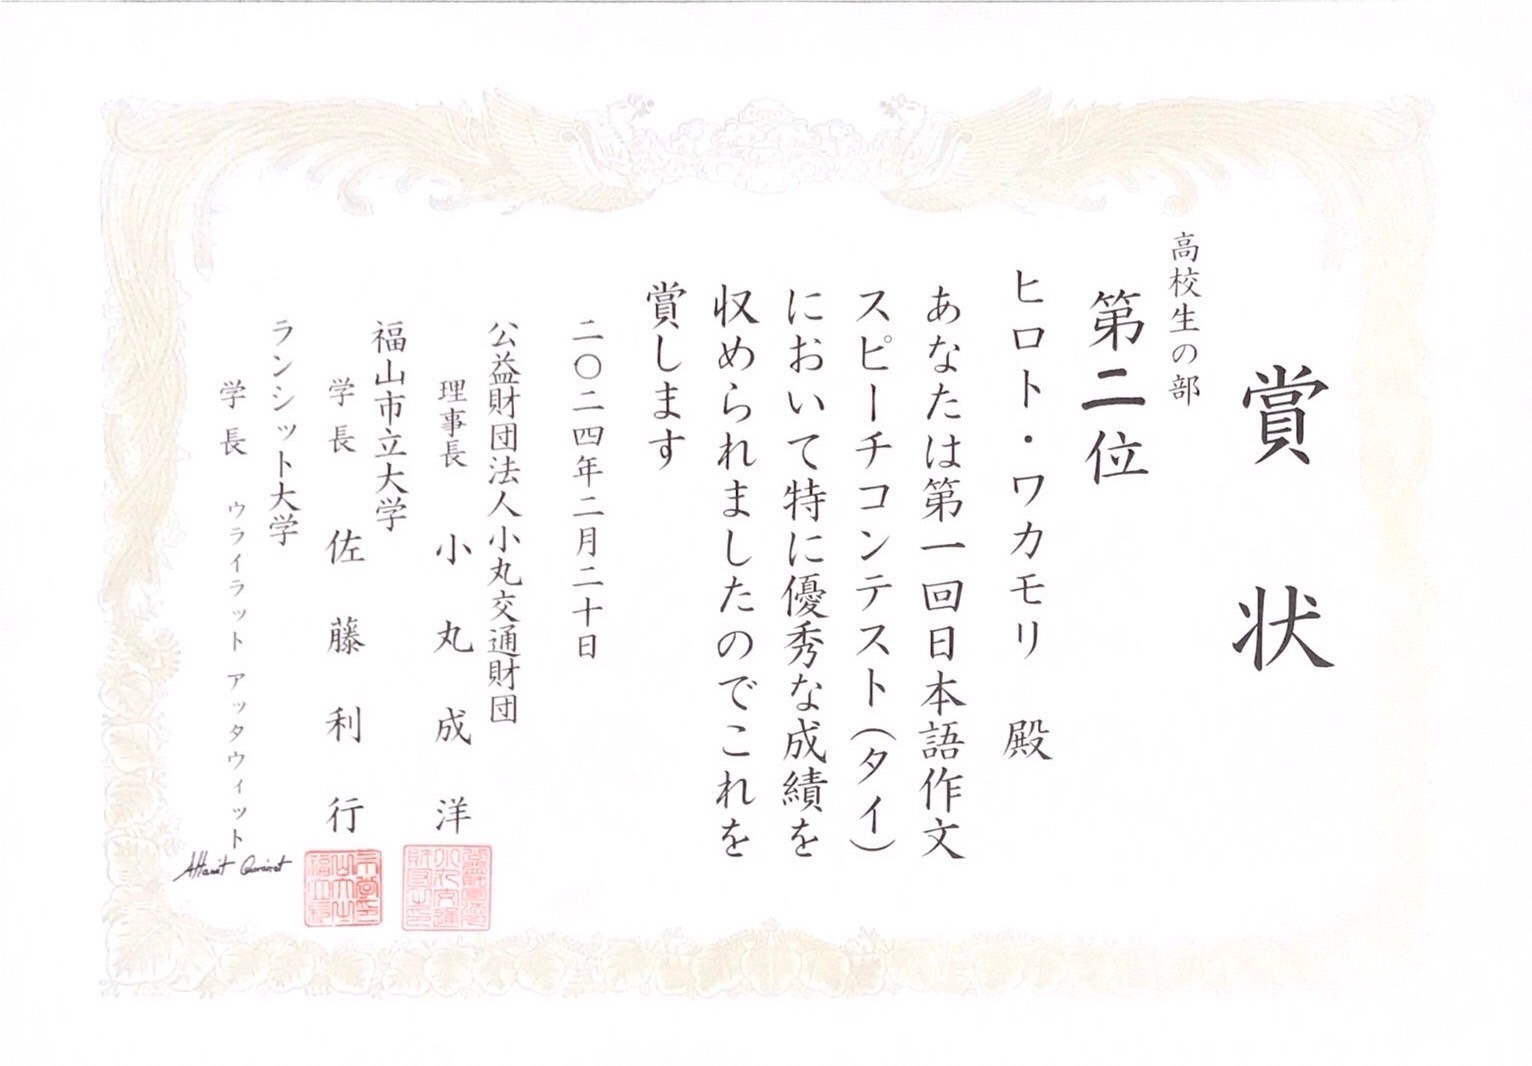 賞状
高校生の部
第二位
ヒロト・ワカモリ 殿
あなたは第一回日本語作文
スピーチコンテスト(タイ)
において特に優秀な成績を
収められましたのでこれを
賞します
二〇二四年二月二十日
公益財団法人小丸交通財団
理事長 小丸成洋
福山市立大学
学長 佐藤利行
ランシット大学
学長 ウライラット アッタウィット